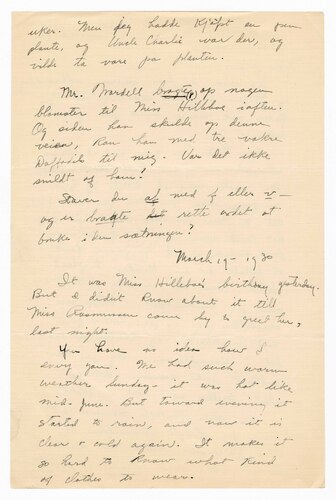 uker. Men jeg hadde kjøpt en fin
plante, og Uncle Charlie var der, og
vilde ta vare på planten.
Mr. Wardell bragte(?) op nogen
blomster til Miss Hilleboe iaften.
Og siden han skulde op denne
veien, kan han med tre vakre
Daffodils til mig. Var det ikke
snildt af ham!
Staver du af med f eller v-
og er bragte rette ordet at
bruke i den sætningen?
March 19 - 1930
It was Miss Hilleboe's birthday yesterday.
But I didn't know about it till
Miss Rasmussen came by & greet her,
last night.
You have no idea how I
envy you. We had such warm
weather Sunday - it was hot like
mid-June. But toward evening it
started to rain, and now it is
clear & cold again. It makes it
so hard to know what kind
of clothes to wear.